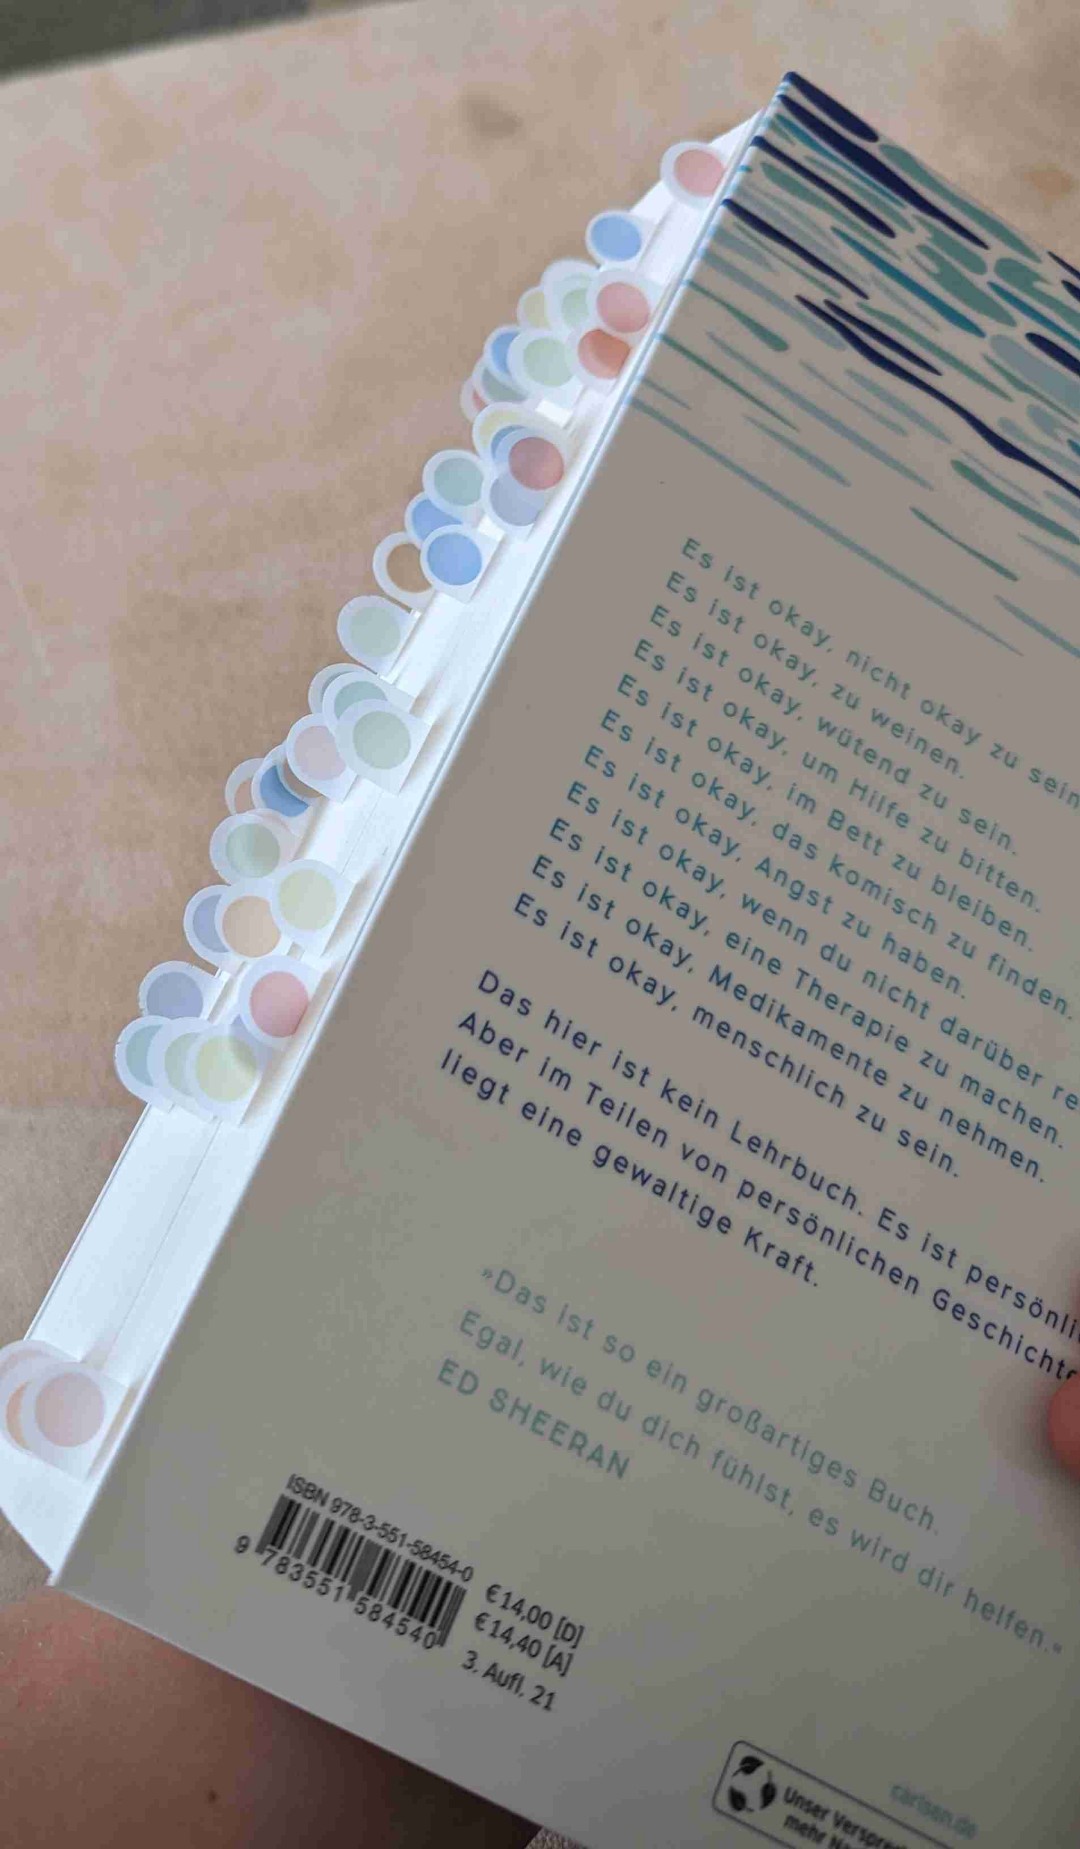 Es ist okay, nicht okay zu sein
Es ist okay, zu weinen.
Es ist okay, wütend zu sein.
Es ist okay, um Hilfe zu bitten.
Es ist okay, im Bett zu bleiben.
Es ist okay, das komisch zu finden.
Es ist okay, Angst zu haben.
Es ist okay, wenn du nicht darüber re
Es ist okay, eine Therapie zu machen.
Es ist okay, Medikamente zu nehmen.
Es ist okay, menschlich zu sein.
Das hier ist kein Lehrbuch. Es ist persönli
Aber im Teilen von persönlichen Geschichte
liegt eine gewaltige Kraft.
»Das ist so ein großartiges Buch.
Egal, wie du dich fühlst, es wird dir helfen.«
ED SHEERAN
ISBN 978-3-551-58454-0
9 783551 584540
€ 14,00 [D]
€ 14,40 [A]
3. Aufl. 21
carlsen.de
Unser Verspre
mehr